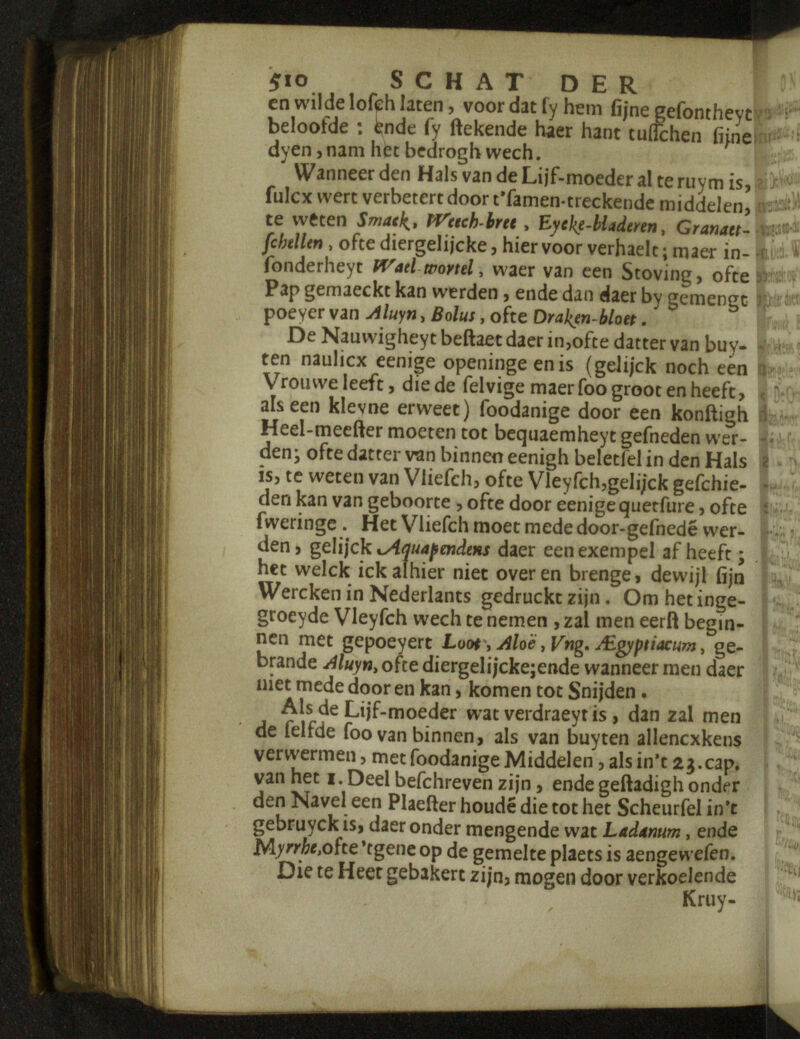 510 SCHAT DER
en wilde losch laten, voor dat sy hem sijne gesontheyt
beloofde : ende sy stekende haer hant tusschen sijne
dyen, nam het bedrogh wech.
Wanneer den Hals van de Lijf-moeder al te ruym is,
sulcx wert verbetert door t'samen-treckende middelen,
te weten Smack, Weech-bree, Eycke-bladeren, Granaet-
schellen, ofte diergelijcke, hier voor verhaelt; maer in-
sonderheyt Wael-wortel, waer van een Stoving, ofte
Pap gemaeckt kan werden, ende dan daer by gemengt
poeyer van Aluyn, Bolus, ofte Draken-bloet.
De Nauwigheyt bestaet daer in, ofte datter van buy-
ten naulicx eenige openinge en is (gelijck noch een
Vrouwe leeft, die de selvige maer soo groot en heeft,
als een kleyne erweet) soodanige door een konstigh
Heel-meester moeten tot bequaemheyt gesneden wer-
den; ofte datter van binnen eenigh beletsel in den Hals
is, te weten van Vliesch, ofte Vleysch, gelijck geschie-
den kan van geboorte, ofte door eenige quetsure, ofte
sweringe. Het Vliesch moet mede door-gesnedē wer-
den, gelijck Aquapendens daer een exempel af heeft;
het welck ick alhier niet over en brenge, dewijl sijn
Wercken in Nederlants gedruckt zijn. Om het inge-
groeyde Vleysch wech te nemen, zal men eerst begin-
nen met gepoeyert Loot, Aloë, Vng. Ægyptiacum, ge-
brande Aluyn, ofte diergelijcke; ende wanneer men daer
niet mede door en kan, komen tot Snijden.
Als de Lijf-moeder wat verdraeyt is, dan zal men
de selfde soo van binnen, als van buyten allencxkens
verwermen, met soodanige Middelen, als in't 23. cap.
van het 1. Deel beschreven zijn, ende gestadigh onder
den Navel een Plaester houdē die tot het Scheursel in't
gebruyck is, daer onder mengende wat Ladanum, ende
Myrrhe, ofte 'tgene op de gemelte plaets is aengewesen.
Die te Heet gebakert zijn, mogen door verkoelende
Kruy-